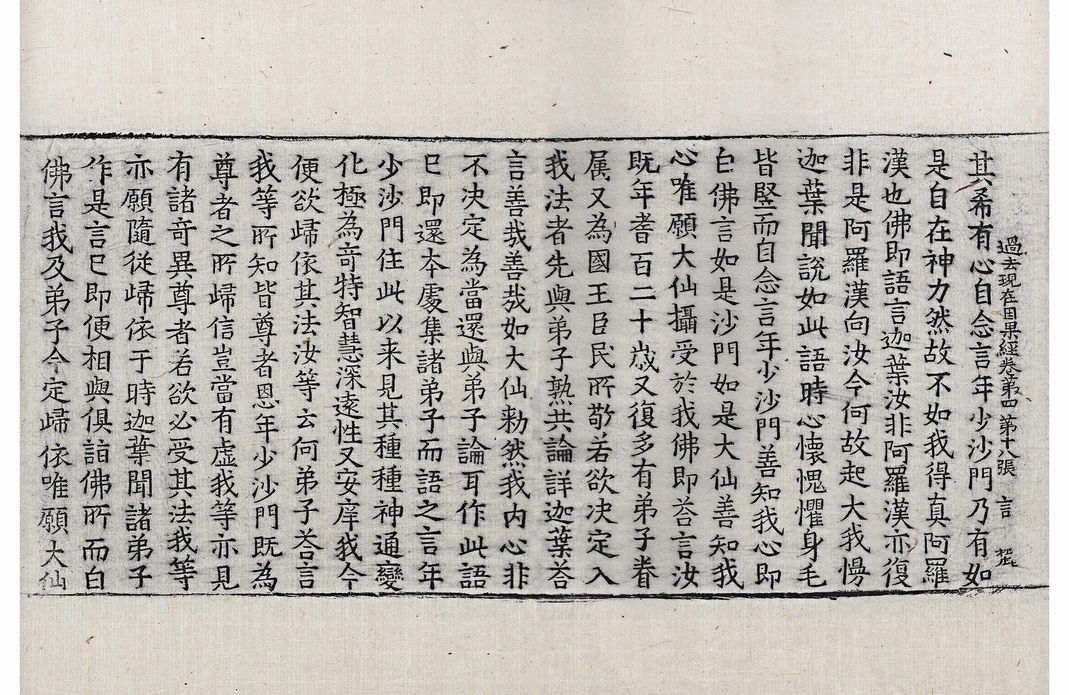 過去現在因果經卷第四 第十八張 言
其希有心自念言年少沙門乃有如
是自在神力然故不如我得真阿羅
漢也佛即語言迦葉汝非阿羅漢亦復
非是阿羅漢向汝今何故起大我慢
迦葉聞說如此語時心懷愧懼身毛
皆竪而自念言年少沙門善知我心即
白佛言如是沙門如是大仙善知我
心唯願大仙攝受於我佛即荅言汝
既年耆百二十歲又復多有弟子眷
属又為國王臣民所敬若欲決定入
我法者先與弟子熟共論詳迦葉荅
言善哉善哉如大仙勑然我内心非
不決定為當還與弟子論耳作此語
已即還本處集諸弟子而語之言年
少沙門住此以来見其種種神通變
化極為竒特智慧深遠性又安庠我今
便欲歸依其法汝等云何弟子荅言
我等所知皆尊者恩年少沙門既為
尊者之所歸信豈當有虛我等亦見
有諸竒異尊者若欲必受其法我等
亦願隨從歸依于時迦葉聞諸弟子
作是言已即便相與俱詣佛所而白
佛言我及弟子今定歸依唯願大仙